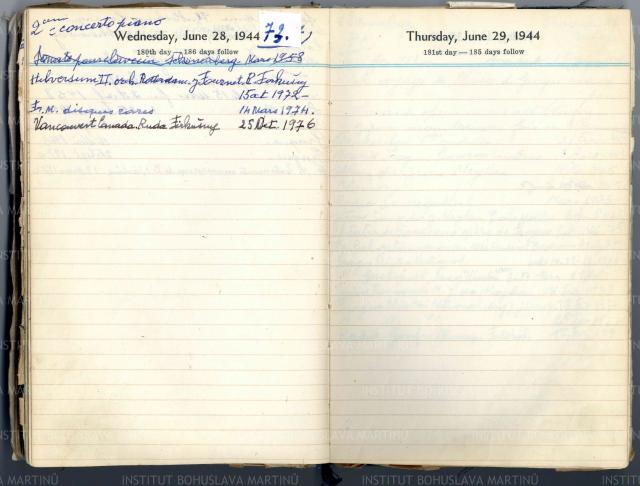 2em concerto piano
Wednesday, June 28, 1944 73.
180th day — 186 days follow
Sonate pour clavecin Mars 1958
Hilversum II. orch. Rotterdam. J Fournet. R. Firkušny
15 oct 1972 -
Fr. M. disques rares 14 Mars 1974.
Vancouvert Canada. Ruda Firkušny 25 Oct. 1976
Thursday, June 29, 1944
181st day — 185 days follow
INSTITUT BOHUSLAVA MARTINŮ